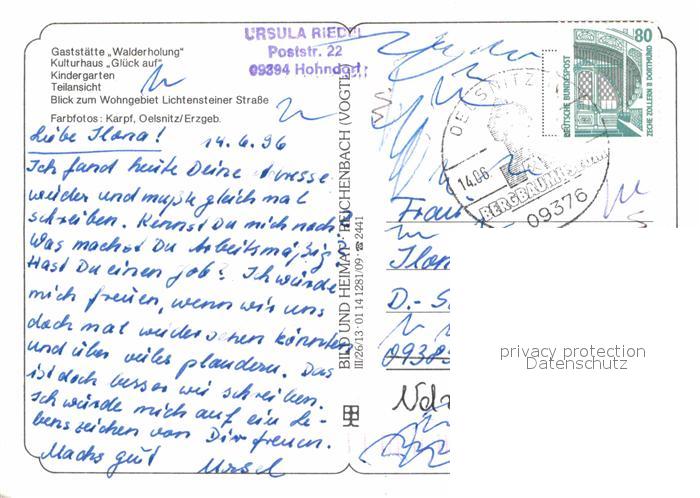 Gaststätte „Walderholung"
Kulturhaus „Glück auf"
Kindergarten
Teilansicht
Blick zum Wohngebiet Lichtensteiner Straße
Farbfotos: Karpf, Oelsnitz/Erzgeb.
URSULA RIEDEL
Poststr. 22
09394 Hohndorf
Liebe Ilona! 14.6.96
Ich fand heute Deine Adresse
wieder und mußte gleich mal
schreiben. Kennst Du mich noch?
Was machst Du Arbeitsmäßig?
Hast Du einen Job? Ich würde
mich freuen, wenn wir uns
doch mal wieder sehen könnten
und über vieles plaudern. Das
ist doch besser wie schreiben.
Ich würde mich auf ein Le-
benszeichen von Dir freuen.
Machs gut Ursel
BILD UND HEIMAT REICHENBACH (VOGTL)
III/26/13 · 01 14 1281/09 · ☎ 2441
80
DEUTSCHE BUNDESPOST
ZECHE ZOLLERN II DORTMUND
OELSNITZ
14.06
BERGBAUM
09376
Frau
D.-
privacy protection
Datenschutz